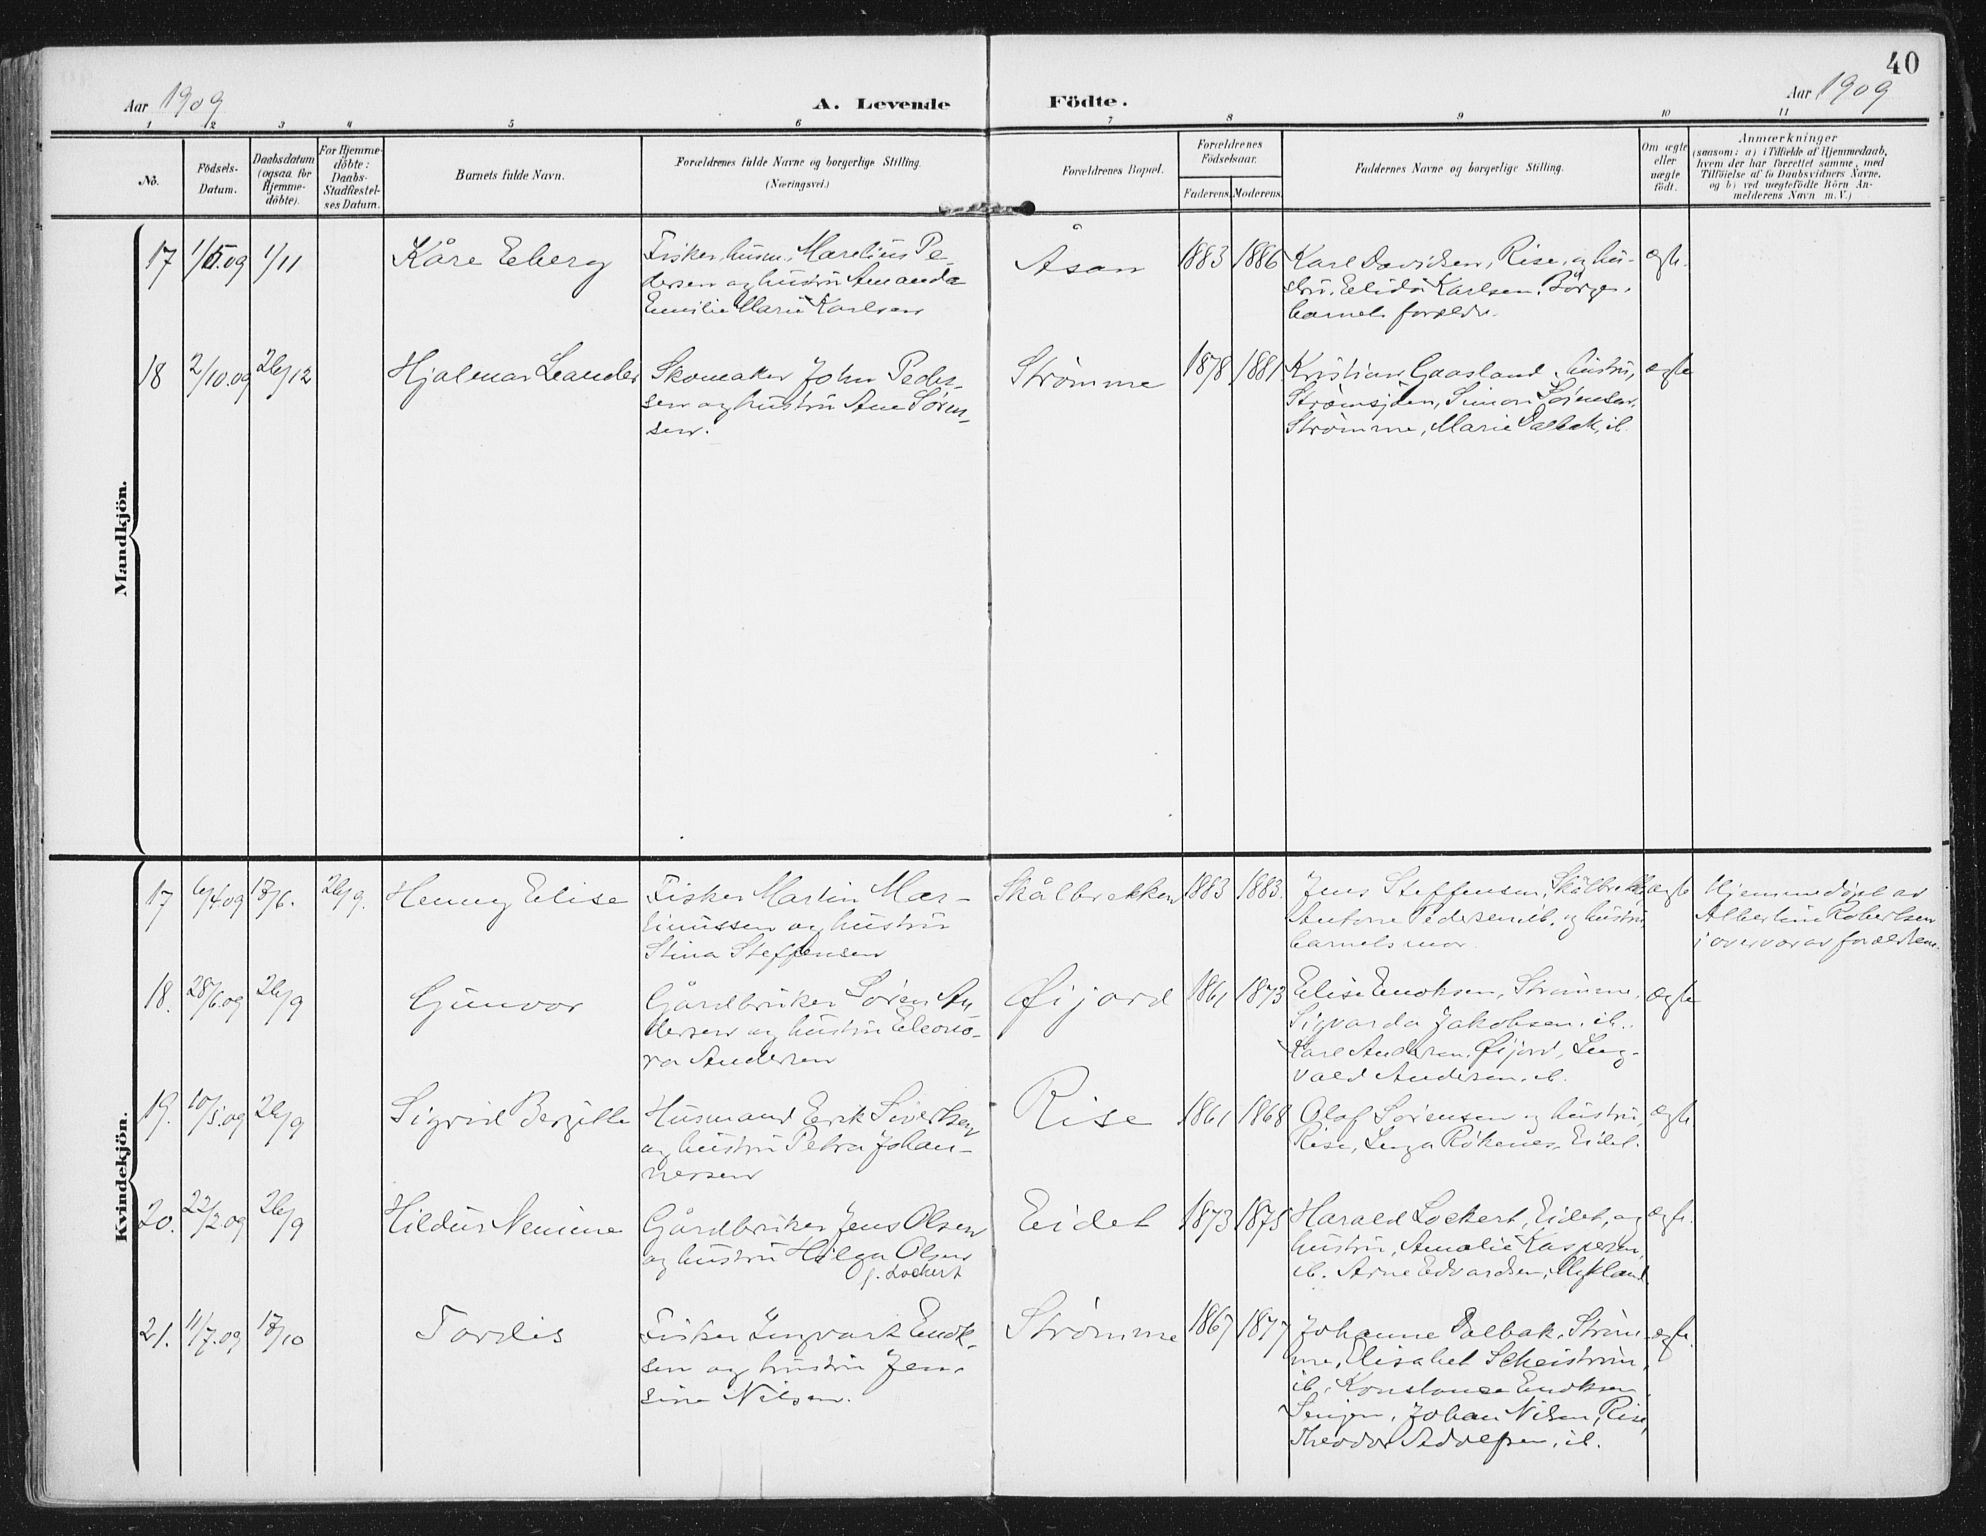 40
Aar 1909
A. Levende Födte.
Aar 1909
1 2 3 4 5 6 7 8 9 10 11
No.
Födsels-
Datum.
Daabsdatum
(ogsaa for
Hjemme-
döbte).
For Hjemme-
döbte:
Daabs-
Stadfæstel-
ses Datum.
Barnets fulde Navn.
Forældrenes fulde Navne og borgerlige Stilling.
(Næringsvei.)
Forældrenes Bopæl.
Forældrenes
Födselsaar.
Faderens. Moderens.
Faddernes Navne og borgerlige Stilling.
Om ægte
eller
uægte
födt.
Anmærkninger
(saasom: a) i Tilfælde af Hjemmedaab,
hvem der har forrettet samme, med
Tilföielse af to Daabsvidners Navne,
og b) ved uægtefödte Börn An-
melderens Navn m. V.)
Mandkjön.
17 1/5.09 1/11 Kåre Eberg
Fisker, husm. Marelius Pe-
dersen og hustru Amanda
Emilie Marie Karlsen
Åsan 1883 1886
Karl Davidsen, Rise, og hu-
stru, Elida Karlsen, Börge,
barnets forældre.
ægte.
18 2/10.09 26/12 Hjalmar Leander
Skomaker John Peder-
sen og hustru Ane Søren-
sen.
Strømme 1878 1881
Kristian Gaasland, hustru,
Strømsjøen, Simon Sørensen,
Strømme, Marie Dalbak, ib.
ægte
Kvindekjön.
17 6/4 09 13/6. 26/9. Henny Elise
Fisker Martin Mar-
tinussen og hustru
Stina Steffensen
Skålbrekken 1883 1883.
Jens Steffensen, Skålbrekk.
Antone Pedersen ib. og hustru,
barnets mor.
ægte
Hjemmedøpt av
Albertine Robertsen
i overvær av forældrene.
18. 28/6.09 26/9 Gunvor
Gårdbruker Søren An-
dersen og hustru Eleono-
ra Andersen
Øijord 1861 1873
Elise Enoksen, Strømme,
Sigvarda Jakobsen, ib.,
Karl Andersen, Øijord, Ling-
vald Andersen, ib.
ægte
19. 10/5.09 26/9 Sigrid Bergitte
Husmand Erik Sivertsen
og hustru Petra Johan-
nersen
Rise 1861 1868
Olaf Sørensen og hustru,
Rise, Inga Rökenes, Eidet.
ægte
20. 22/2.09 26/9 Hildur Nemine
Gårdbruker Jens Olsen
og hustru Helga Olsen
f. Lockert
Eidet 1873 1875
Harald Lockert, Eidet, og
hustru, Amalie Kaspersen,
ib. Arne Edvardsen, Mykland
ægte.
21. 11/7.09 17/10 Tordis
Fisker Ingvart Enok-
sen og hustru Jen-
sine Nilsen.
Strømme 1867 1877
Johanne Dalbak, Strøm-
me, Elisabet Scheistrøm,
ib. Konstanse Enoksen,
Senjen, Johan Nilsen, Rise,
Theodor Adolfsen, ib.
ægte.